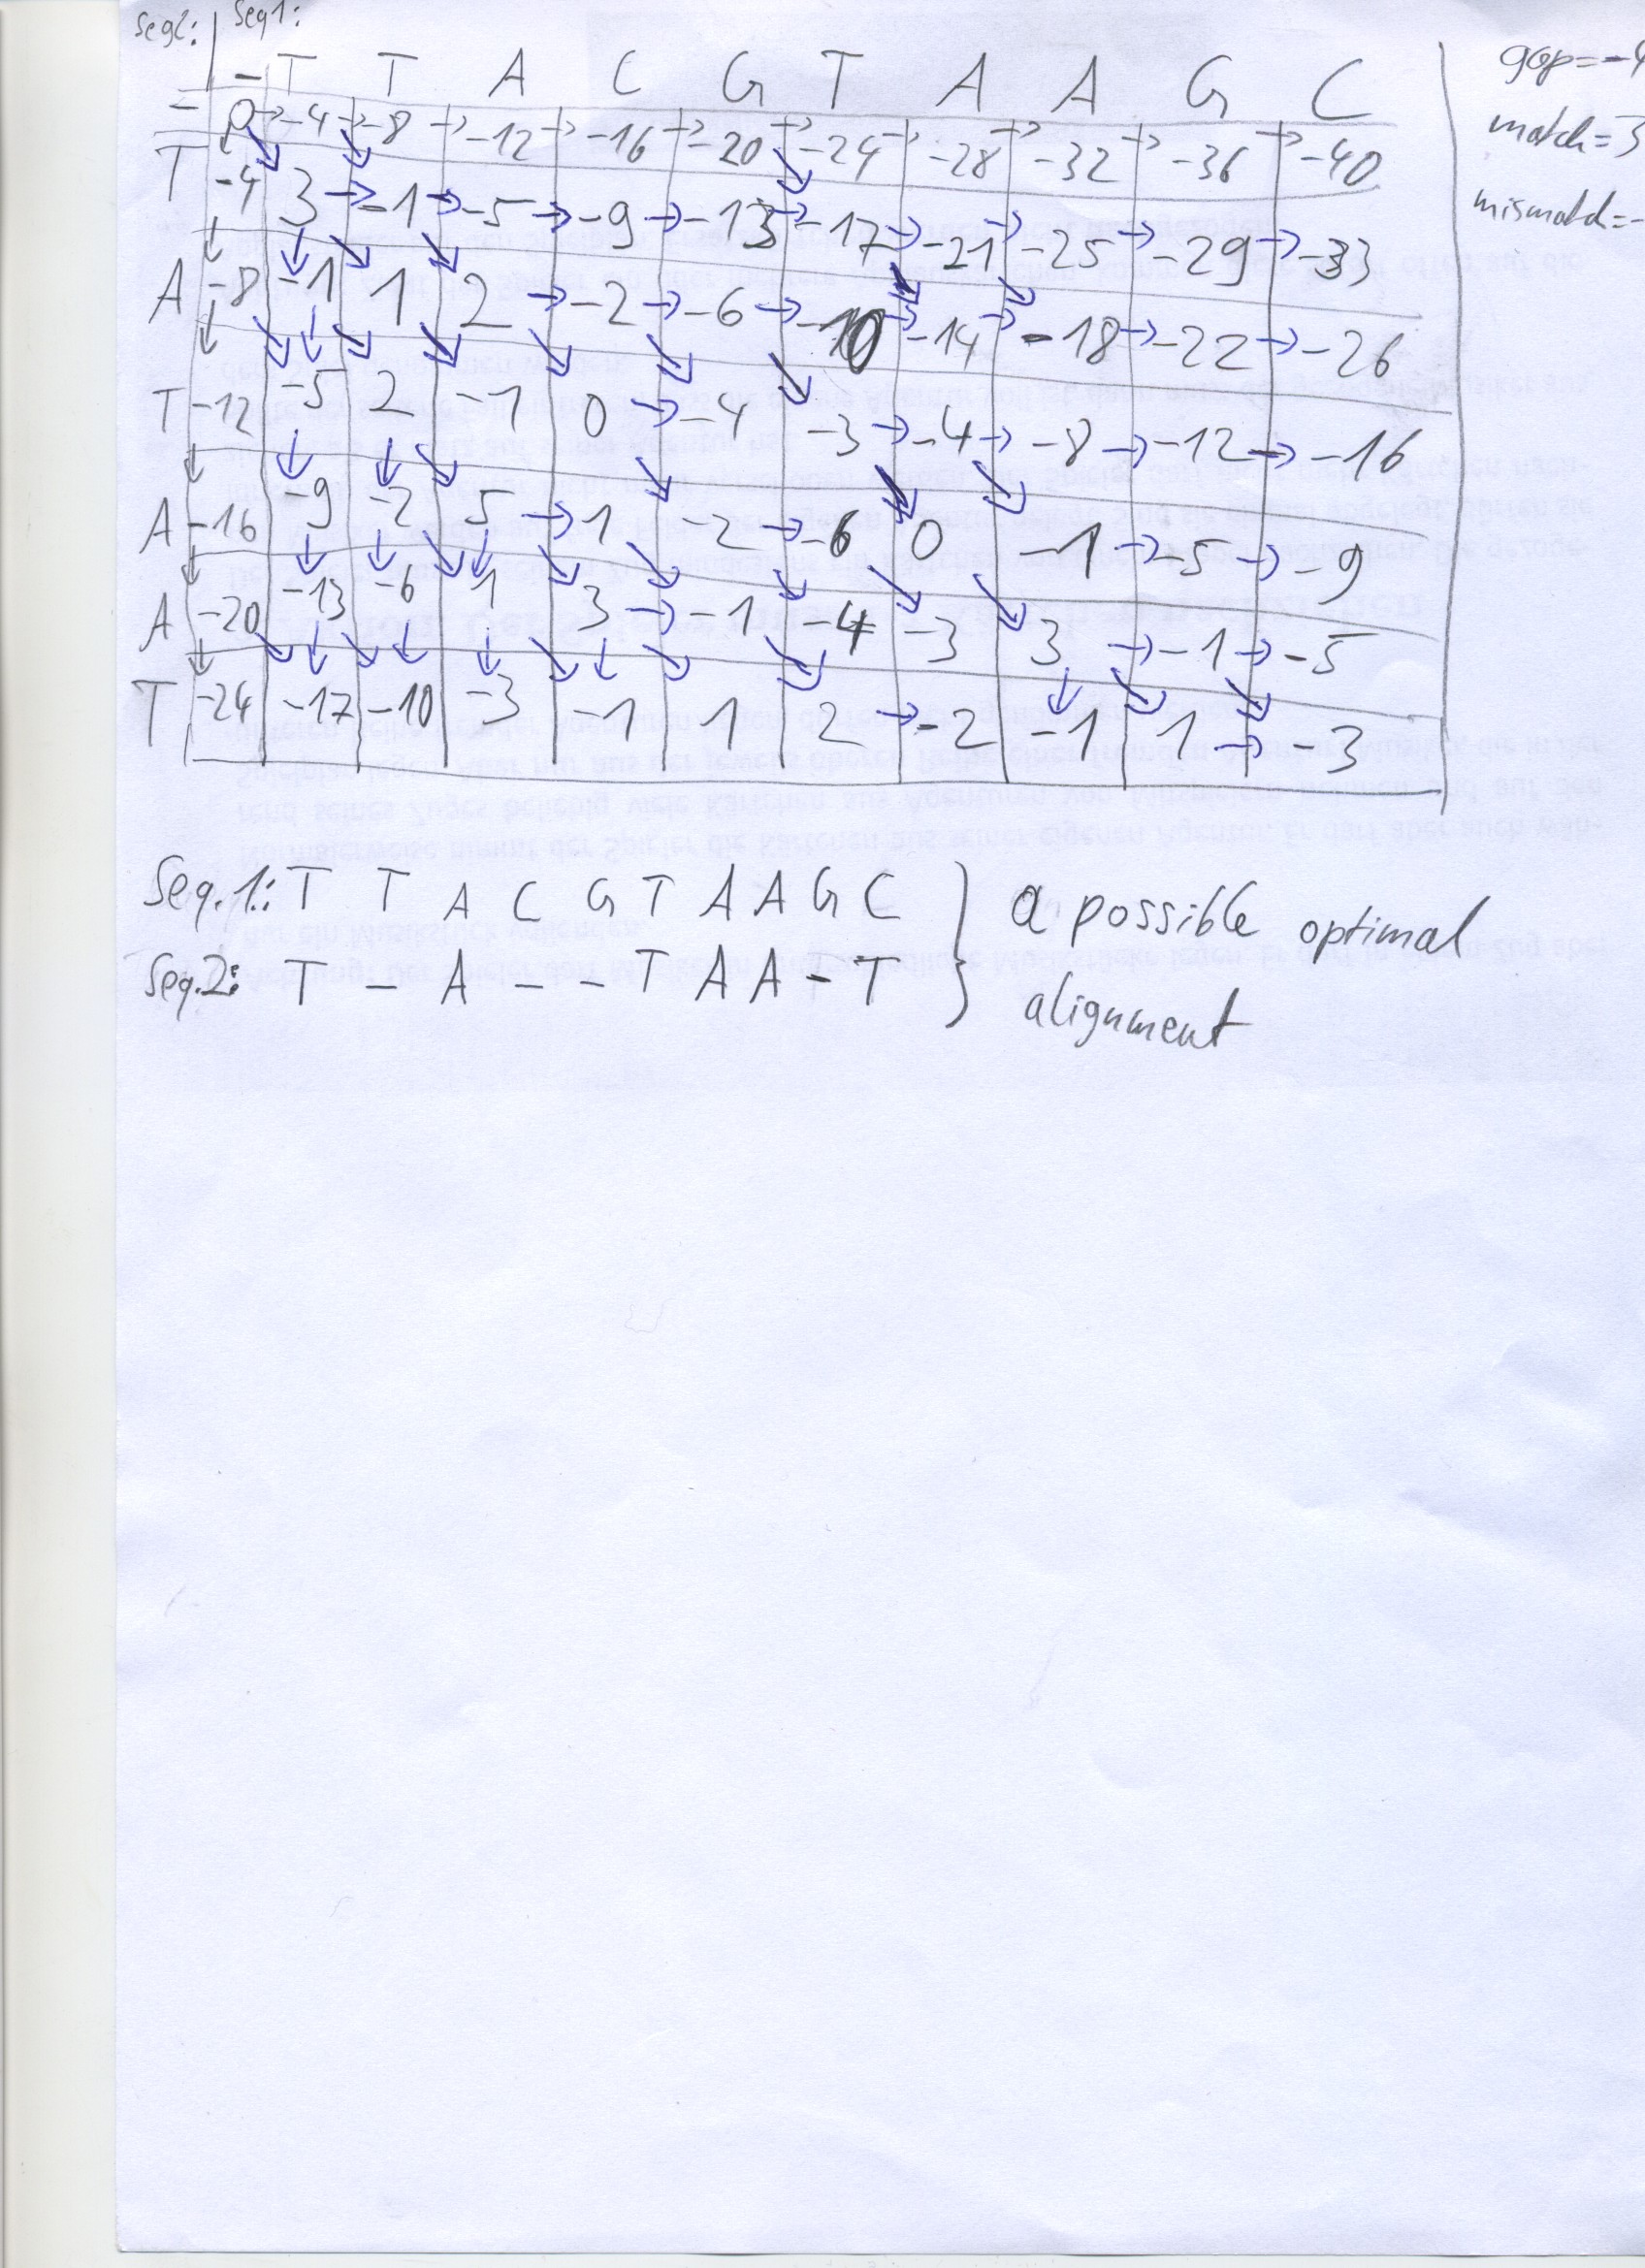 Seq2: Seq1:
- T T A C G T A A G C
- 0 → -4 → -8 → -12 → -16 → -20 → -24 → -28 → -32 → -36 → -40
T -4 3 → -1 → -5 → -9 → -13 → -17 → -21 → -25 → -29 → -33
A -8 -1 1 2 → -2 → -6 → -10 → -14 → -18 → -22 → -26
T -12 -5 2 -1 0 → -4 -3 → -4 → -8 → -12 → -16
A -16 -9 -2 5 → 1 -2 → -6 0 -1 → -5 → -9
A -20 -13 -6 1 3 → -1 → -4 -3 3 → -1 → -5
T -24 -17 -10 -3 -1 1 2 → -2 -1 1 → -3
gap=-4
match=3
mismatch=-
Seq.1.: T T A C G T A A G C
Seq.2: T - A - - T A A - T
} a possible optimal
alignment